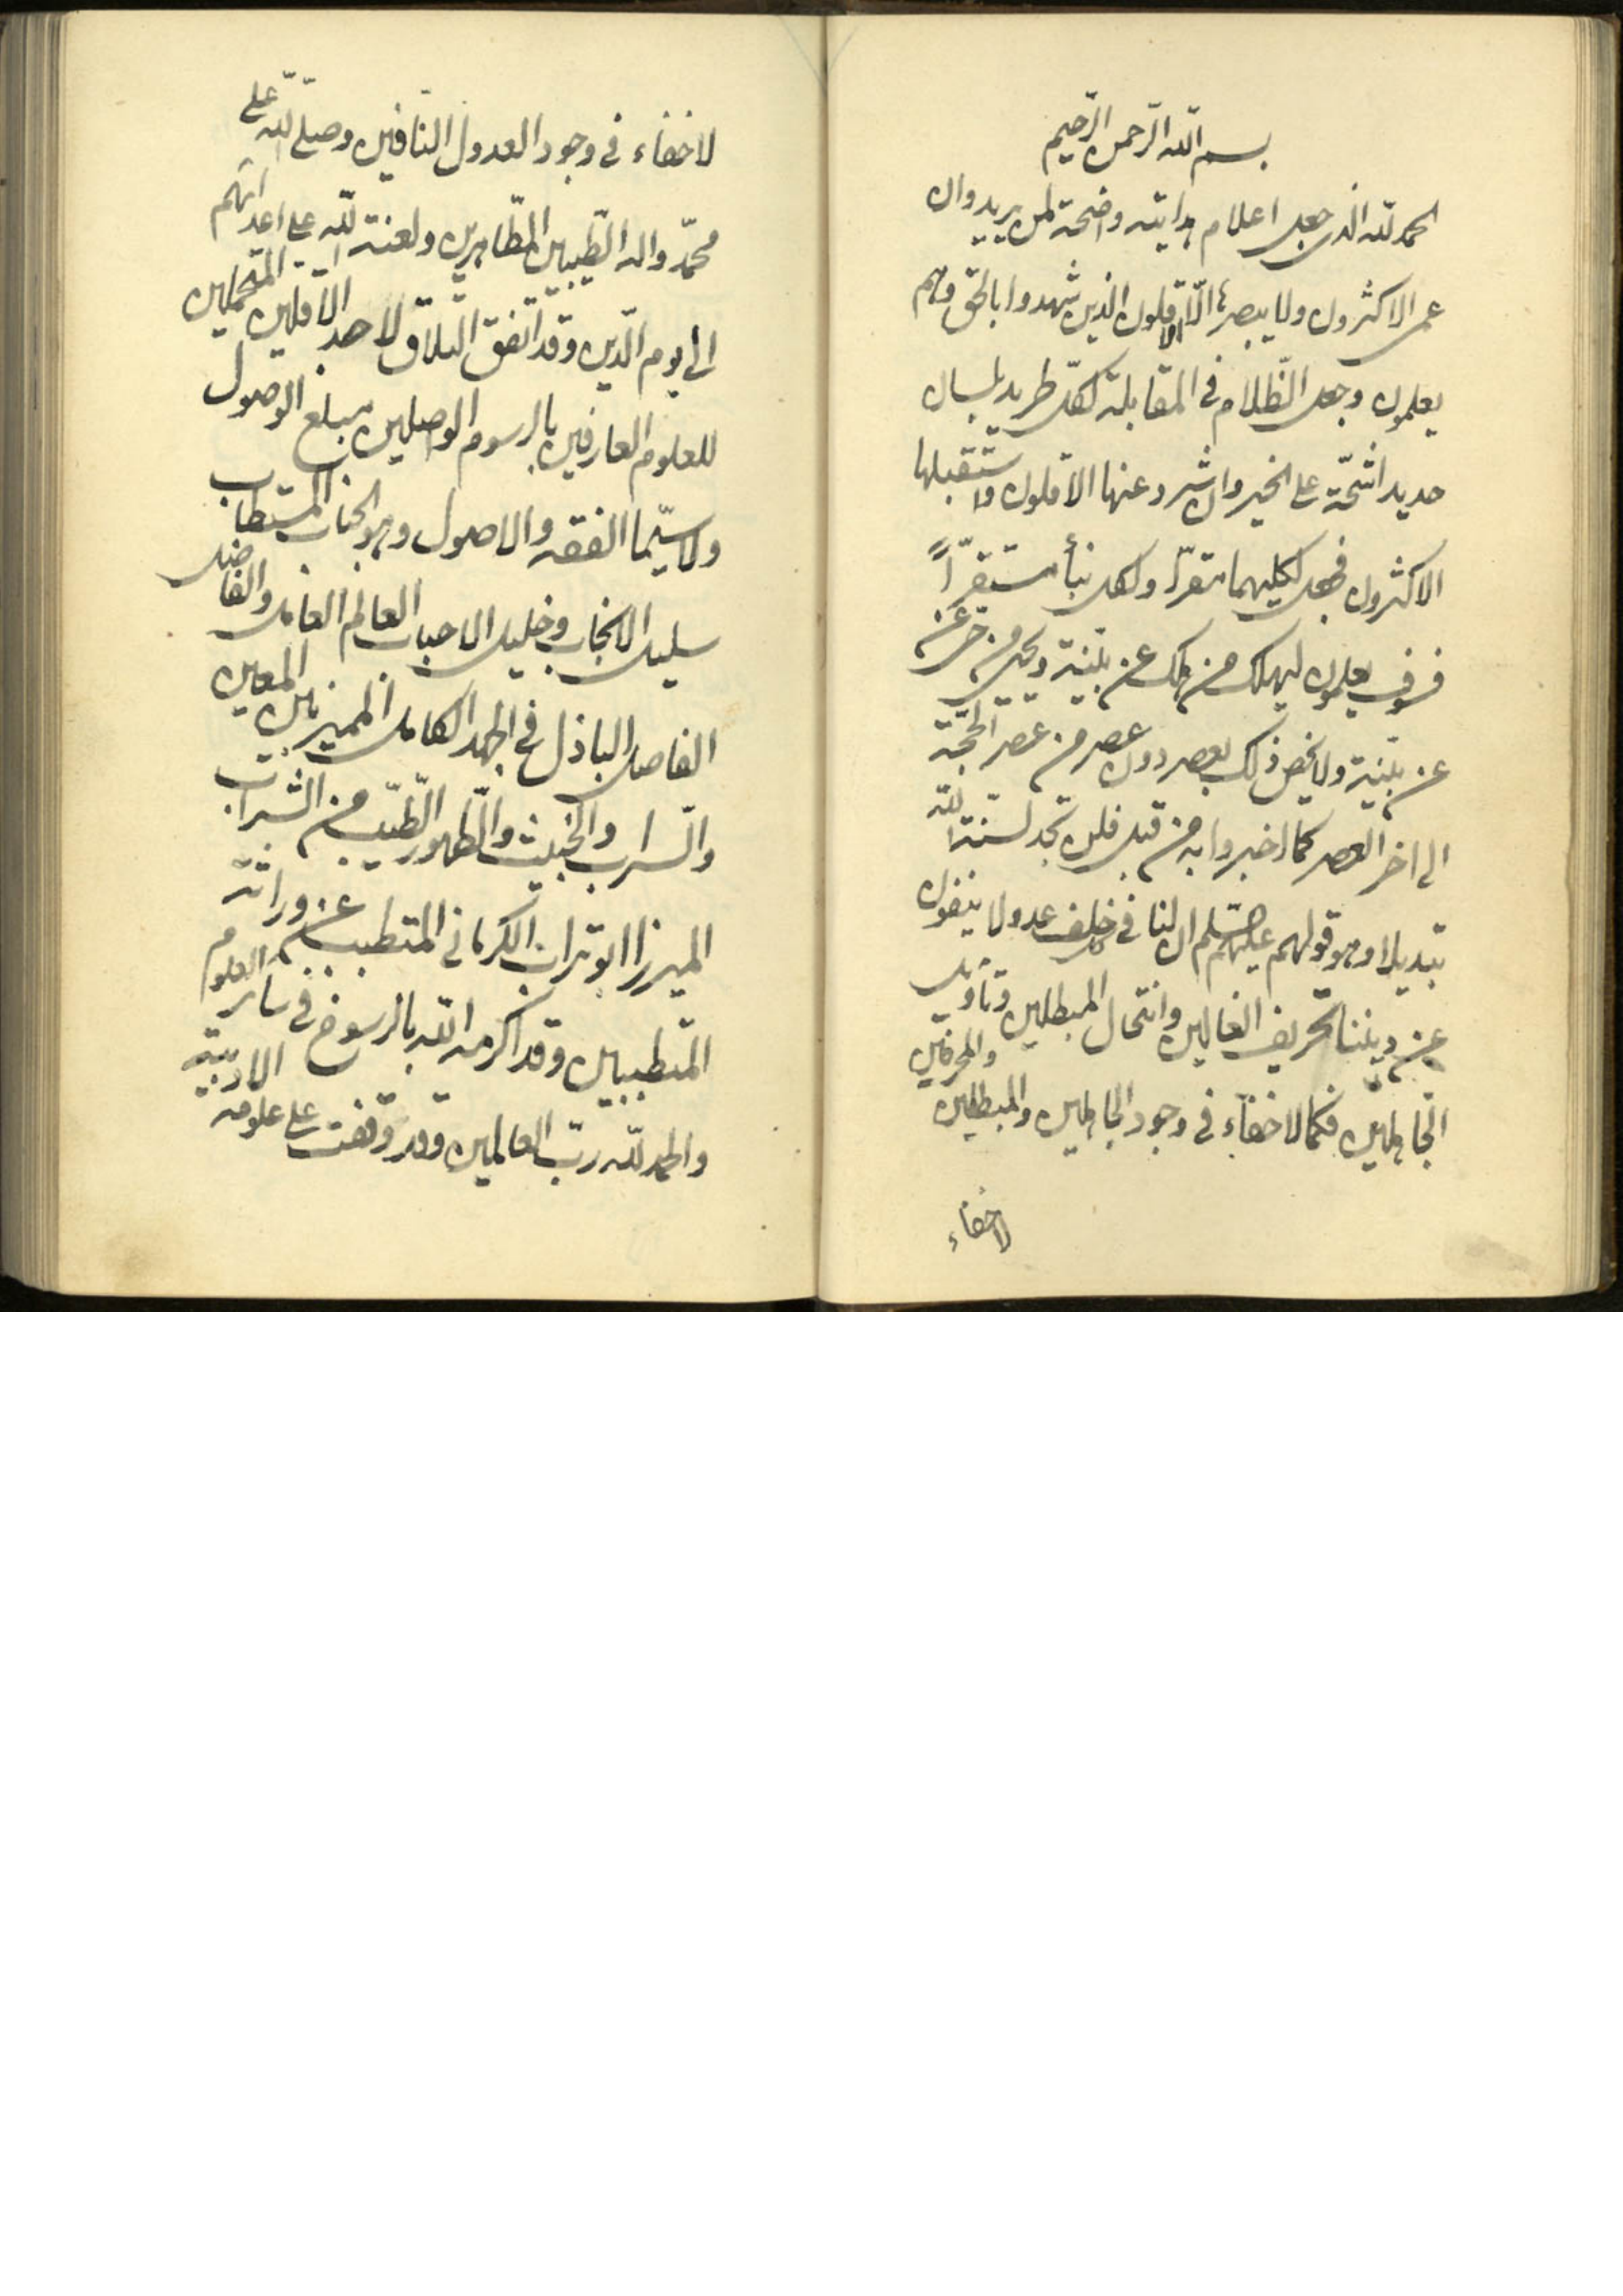 بسم الله الرحمن الرحیم
الحمد لله الذی جعل اعلام هدایته واضحة لمن یرید وان
عمی الاکثرون ولا یبصرها الّا الاقلون الذین شهدوا بالحق وهم
یعلمون وجعل الظّلام فی المقابلة لکلّ طرید بلسان
حدید اشحّة علی الخیر وان شرد عنها الاقلون واستقبلها
الاکثرون فجعل لکلیهما مقرّا ولکل نبأ مستقرّاً
فسوف یعلمون لیهلک من هلک عن بیّنة ویحیی من حی عن
عن بیّنة ولا یخص ذلک بعصر دون عصر من عصر الحجّة
الی اخر العصر کما اخبروا به من قبل فلن تجد لسنة الله
تبدیلا وهو قولهم علیهم السّلم ان لنا فی کل خلف عدولا ینفون
عن دیننا تحریف الغالین وانتحال المبطلین وتأویل
الجاهلین فکما لا خفاء فی وجود الجاهلین والمبطلین والمحرفین
لا خفاء
لا خفاء فی وجود العدول النافین وصلّی الله علی
محمّد واله الطّیبین الطّاهرین ولعنة الله علی اعدائهم
الی یوم الدّین وقد اتفق التلاق لاحد الاقلین المتحملین
للعلوم العارفین بالرسوم الواصلین مبلغ الوصول
ولا سیّما الفقه والاصول وهو الجناب المستطاب
سلیل الانجاب وخلیل الاحباب العالم العامل والفاضل
الفاصل الباذل فی الجهد الکامل الممیز بین المعین
والسراب والخبیث والطهور الطّیّب من الشراب
المیرزا ابوتراب الکرمانی المتطبب عن وراثة
المتطببین وقد اکرمه الله بالرسوخ فی سایر العلوم الادبیة
والحمد لله ربّ العالمین وقد وقفت علی علومه